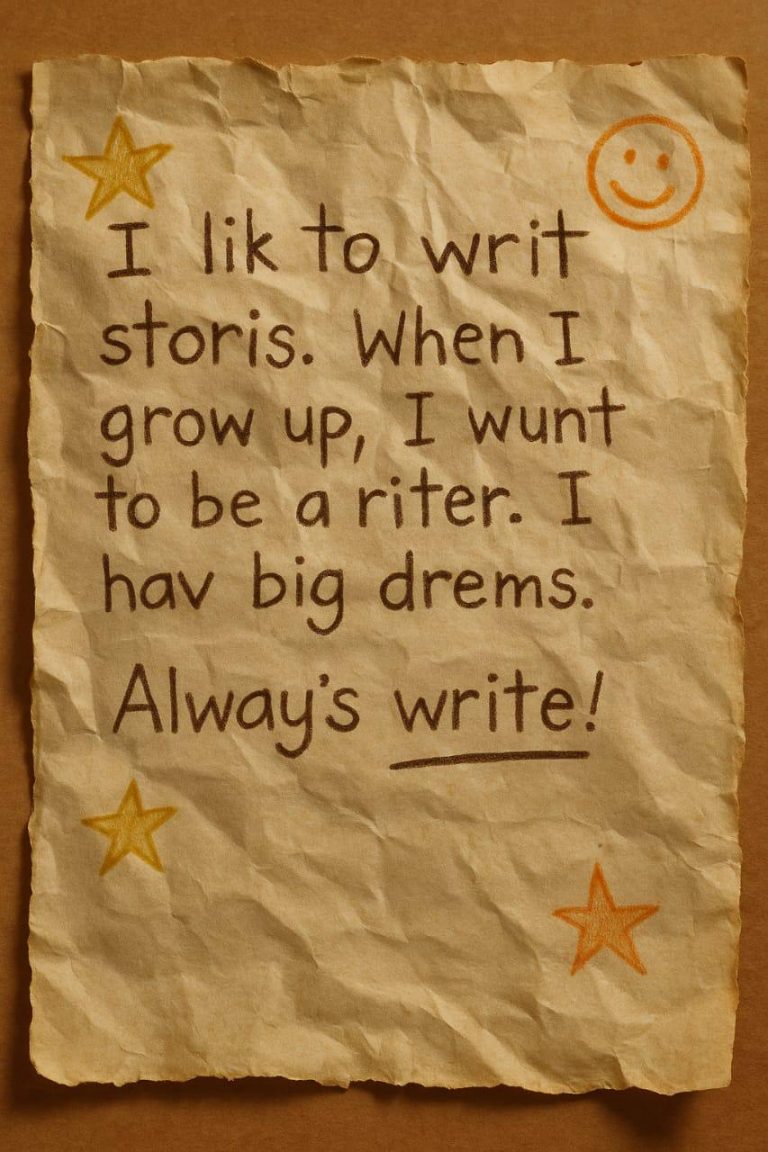 I lik to writ
storis. When I
grow up, I wunt
to be a riter. I
hav big drems.
Alway's write!